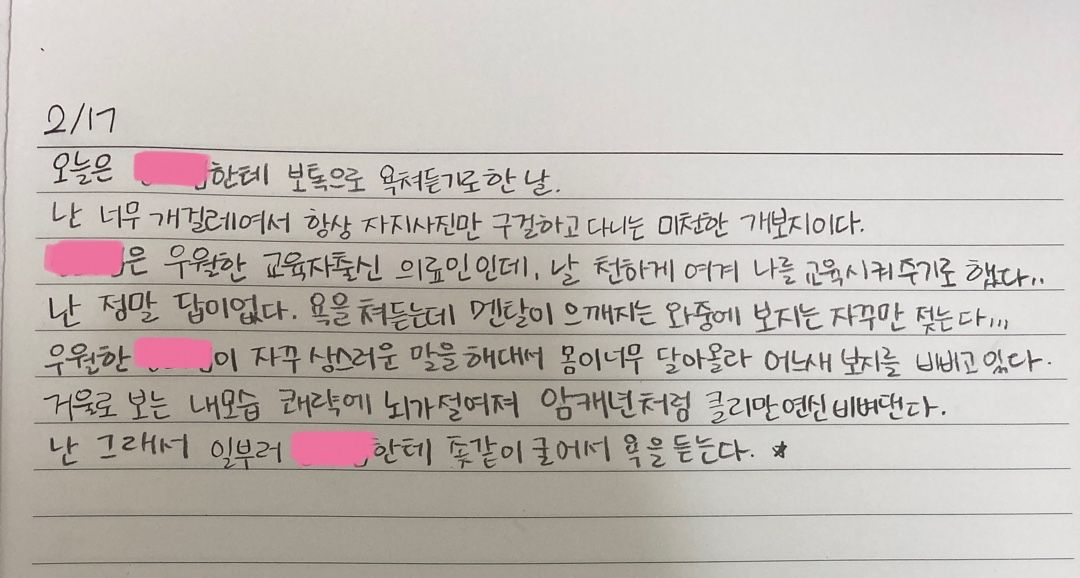 2/17
오늘은 한테 보톡으로 욕쳐듣기로한 날.
난 너무 개걸레여서 항상 자지사진만 구걸하고 다니는 미천한 개보지이다.
은 우월한 교육자출신 의료인인데, 날 천하게 여겨 나를 교육시켜주기로 했다..
난 정말 답이없다. 욕을 쳐듣는데 멘탈이 으깨지는 와중에 보지는 자꾸만 젖는다...
우월한 이 자꾸 상스러운 말을 해대서 몸이너무 달아올라 어느새 보지를 비비고있다.
거울로 보는 내모습 쾌락에 뇌가절여져 암캐년처럼 클리만연신비벼댄다.
난 그래서 일부러 한테 좆같이 굴어서 욕을 듣는다. ★